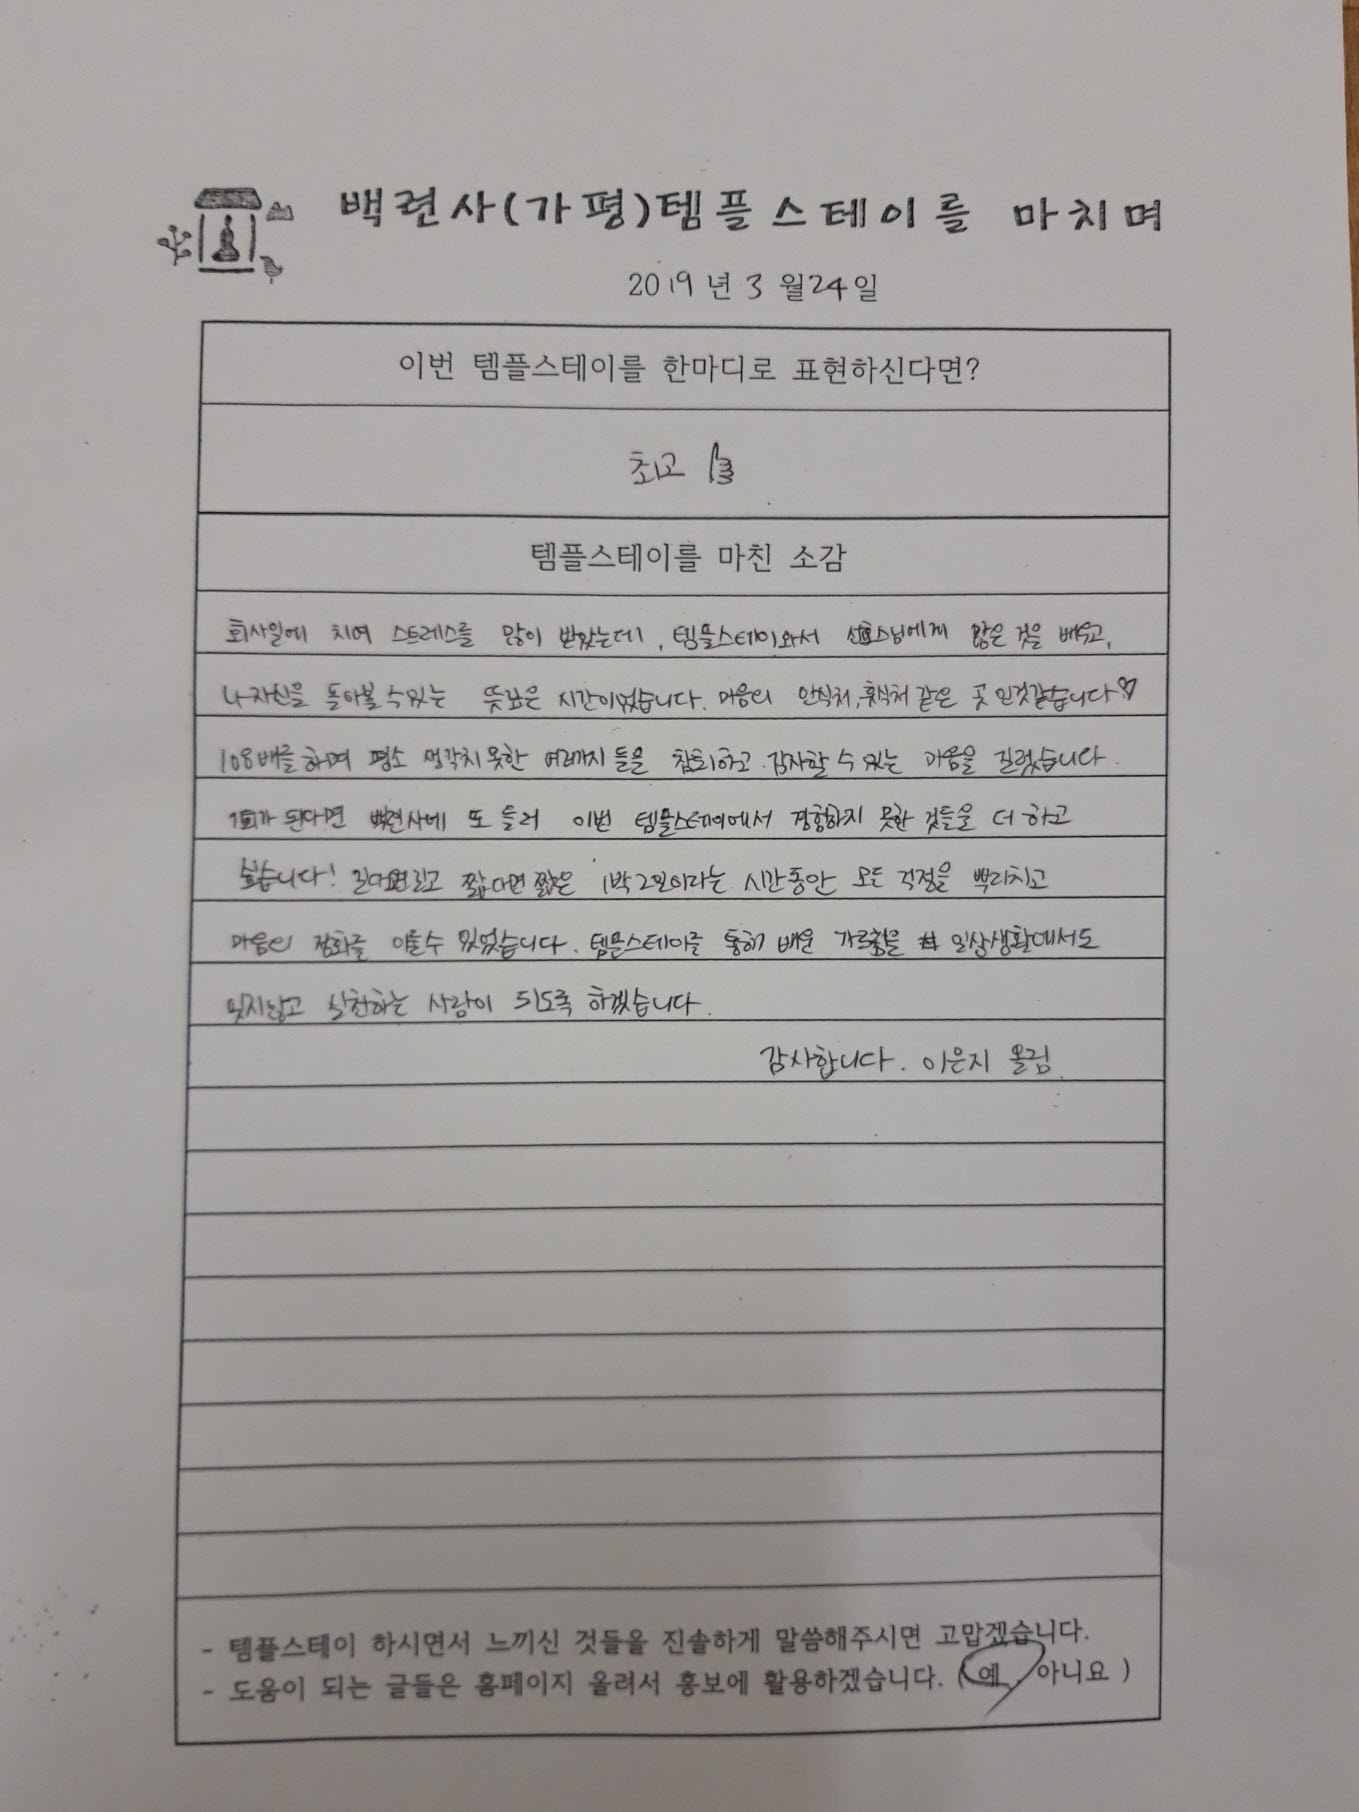 백련사(가평)템플스테이를 마치며
2019년 3월24일
이번 템플스테이를 한마디로 표현하신다면?
최고
템플스테이를 마친 소감
회사일에 치여 스트레스를 많이 받았는데, 템플스테이와서 스님에게 많은 것을 배우고,
나 자신을 돌아볼 수 있는 뜻깊은 시간이었습니다. 마음의 안식처, 휴식처 같은 곳 인것같습니다♡
108배를 하며 평소 생각치 못한 여러가지 들을 참회하고 감사할 수 있는 마음을 길렀습니다.
기회가 된다면 백련사에 또 들러 이번 템플스테이에서 경험하지 못한 것들을 더 하고
싶습니다! 길다면길고 짧다면 짧은 1박2일이라는 시간동안 모든 걱정을 뿌리치고
마음의 정화를 이룰수 있었습니다. 템플스테이를 통해 배운 가르침을 일상생활에서도
잊지않고 실천하는 사람이 되도록 하겠습니다.
감사합니다. 이은지 올림.
- 템플스테이 하시면서 느끼신 것들을 진솔하게 말씀해주시면 고맙겠습니다.
- 도움이 되는 글들은 홈페이지 올려서 홍보에 활용하겠습니다. (예, 아니요 )